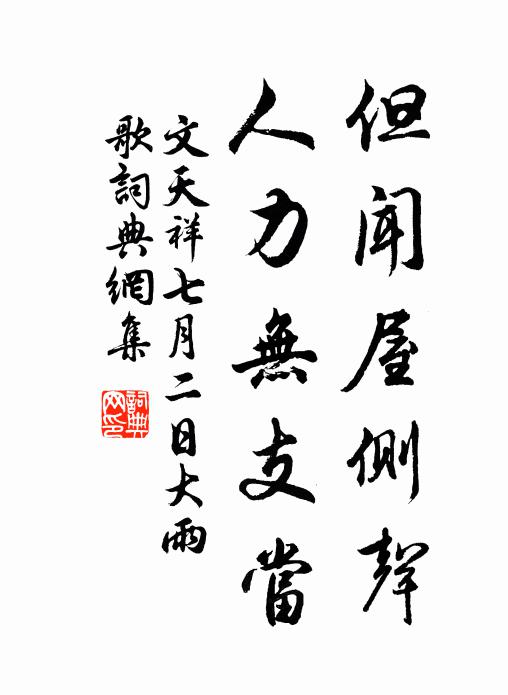 但聞屋側聲
人力無支當
文天祥七月二日大雨
歌詞典網集
詞典
网印